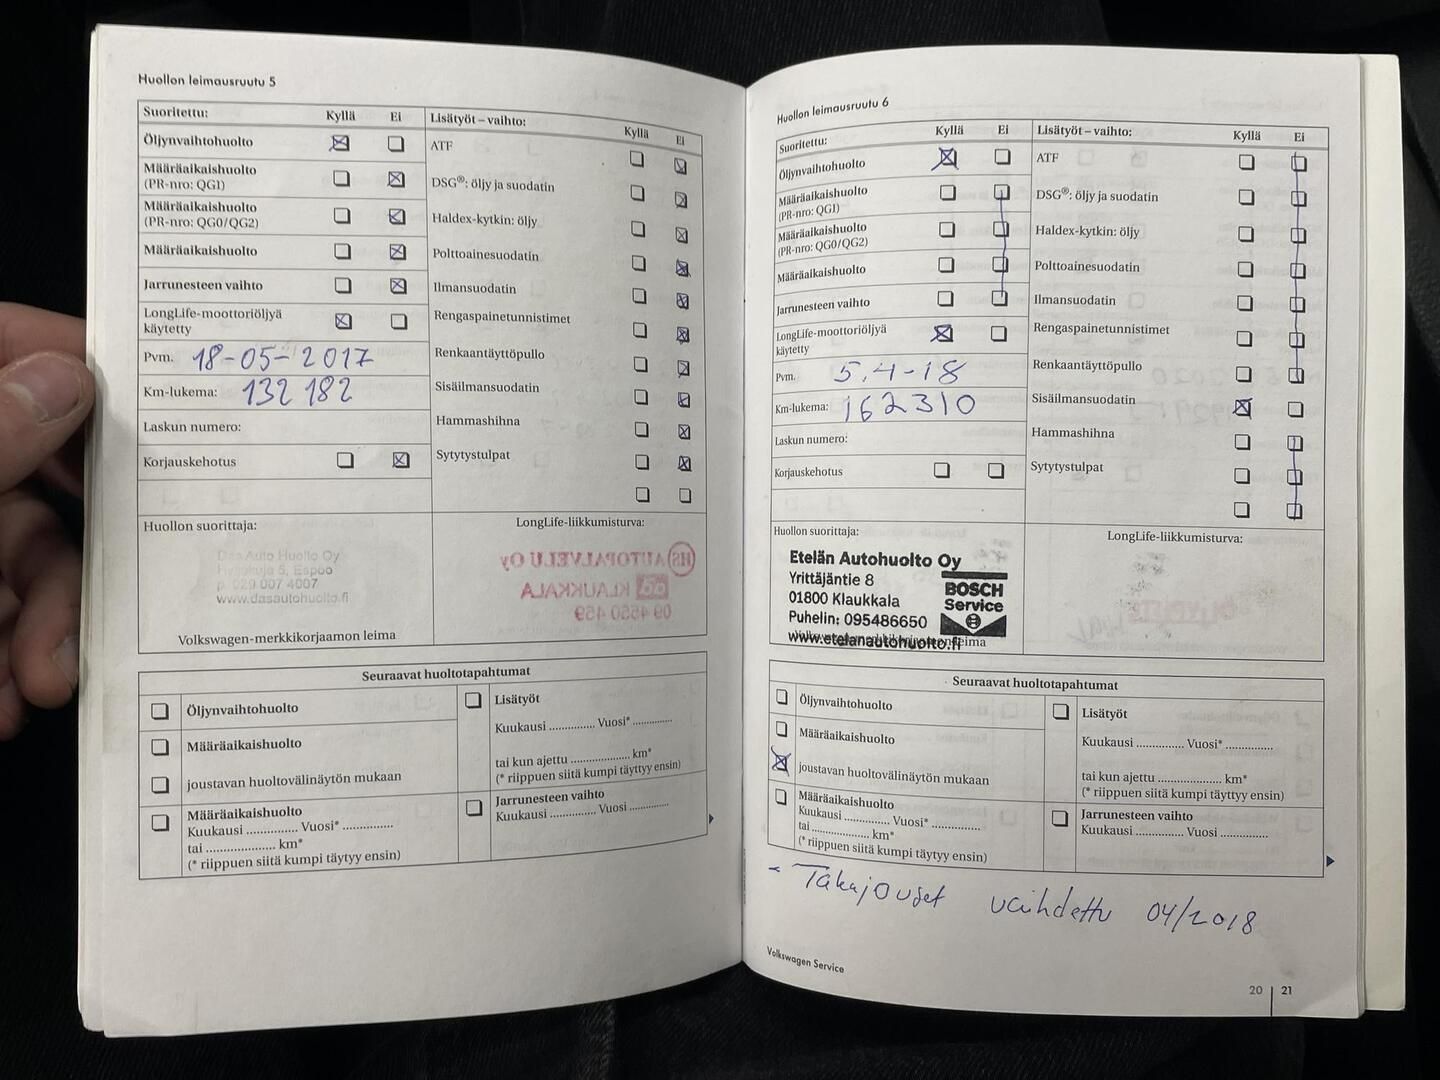 Huollon leimausruutu 5
Suoritettu: Kyllä Ei
Öljynvaihtohuolto
Määräaikaishuolto
(PR-nro: QG1)
Määräaikaishuolto
(PR-nro: QG0/QG2)
Määräaikaishuolto
Jarrunesteen vaihto
LongLife-moottoriöljyä
käytetty
Pvm. 18-05-2017
Km-lukema: 132 182
Laskun numero:
Korjauskehotus
Lisätyöt – vaihto: Kyllä Ei
ATF
DSG®: öljy ja suodatin
Haldex-kytkin: öljy
Polttoainesuodatin
Ilmansuodatin
Rengaspainetunnistimet
Renkaantäyttöpullo
Sisäilmansuodatin
Hammashihna
Sytytystulpat
Huollon suorittaja:
Das Auto Huolto Oy
5, Espoo
p. 029 007 4007
www.dasautohuolto.fi
Volkswagen-merkkikorjaamon leima
LongLife-liikkumisturva:
HS AUTOPALVELU OY
KLAUKKALA
09 4550 459
Seuraavat huoltotapahtumat
Öljynvaihtohuolto
Määräaikaishuolto
joustavan huoltovälinäytön mukaan
Määräaikaishuolto
Kuukausi .............. Vuosi* ..............
tai .................... km*
(* riippuen siitä kumpi täytyy ensin)
Lisätyöt
Kuukausi ............. Vuosi* ............
tai kun ajettu .................. km*
(* riippuen siitä kumpi täytyy ensin)
Jarrunesteen vaihto
Kuukausi ............. Vuosi ............
Huollon leimausruutu 6
Suoritettu: Kyllä Ei
Öljynvaihtohuolto
Määräaikaishuolto
(PR-nro: QG1)
Määräaikaishuolto
(PR-nro: QG0/QG2)
Määräaikaishuolto
Jarrunesteen vaihto
LongLife-moottoriöljyä
käytetty
Pvm. 5.4-18
Km-lukema: 162310
Laskun numero:
Korjauskehotus
Lisätyöt – vaihto: Kyllä Ei
ATF
DSG®: öljy ja suodatin
Haldex-kytkin: öljy
Polttoainesuodatin
Ilmansuodatin
Rengaspainetunnistimet
Renkaantäyttöpullo
Sisäilmansuodatin
Hammashihna
Sytytystulpat
Huollon suorittaja:
Etelän Autohuolto Oy
Yrittäjäntie 8
01800 Klaukkala
Puhelin: 095486650
www.etelanautohuolto.fi
BOSCH
Service
LongLife-liikkumisturva:
Seuraavat huoltotapahtumat
Öljynvaihtohuolto
Määräaikaishuolto
joustavan huoltovälinäytön mukaan
Määräaikaishuolto
Kuukausi ............. Vuosi* .............
tai .................... km*
(* riippuen siitä kumpi täytyy ensin)
Lisätyöt
Kuukausi .............. Vuosi* ..............
tai kun ajettu .................... km*
(* riippuen siitä kumpi täytyy ensin)
Jarrunesteen vaihto
Kuukausi .............. Vuosi ..............
- Takajouset vaihdettu 04/2018
Volkswagen Service
20 21